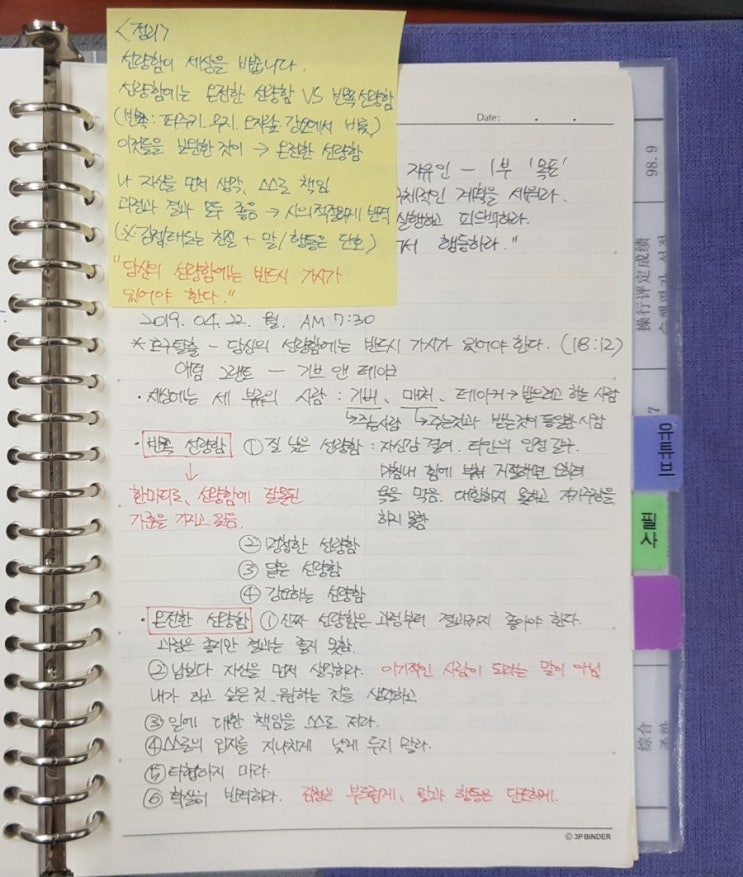 <정리>
선량함이 세상을 바꿉니다.
선량함에는 온전한 선량함 VS 반쪽 선량함
이것들을 보완한 것이 → 온전한 선량함
나 자신을 먼저 생각, 스스로 책임
과정과 결과 모두 좋음 → 시의적절하게 반격
(※ 감정/태도는 친절 + 말/행동은 단호)
"당신의 선량함에는 반드시 가시가
있어야 한다."
Date: . .
자유인 - 1부 '목표'
구체적인 계획을 세워라.
실행하고 피드백하라.
행동하라."
2019. 04. 22. 월. AM 7:30
* 호구탈출 - 당신의 선량함에는 반드시 가시가 있어야 한다. (18:12)
애덤 그랜트 - 기브 앤 테이크
· 세상에는 세 부류의 사람 : 기버, 매처, 테이커 → 받으려고 하는 사람
↳ 주는사람 ↳ 주는것과 받는것이 동일한 사람
· 반쪽 선량함 ① 질 낮은 선량함 : 자신감 결여. 타인의 인정 갈구.
↓
한마디로, 선량함에 잘못된
기준을 가지고 있음.
욕을 먹음. 대항하지 못하고 자기주장을
하지 못함
② 멍청한 선량함
③ 얇은 선량함
④ 강요하는 선량함
· 온전한 선량함 ① 진짜 선량함은 과정부터 결과까지 좋아야 한다.
과정은 좋지만 결과는 좋지 못함.
② 남보다 자신을 먼저 생각하라. 이기적인 사람이 되라는 말이 아님
내가 하고 싶은 것, 원하는 것을 생각하고
③ 일에 대한 책임을 스스로 져라.
④ 스스로의 위치를 지나치게 낮게 두지 말라.
⑤ 타협하지 마라.
⑥ 확실히 반격하라. 감정은 부드럽게, 말과 행동은 단호하게.
© 3P BINDER
98.9
操行评定成绩
유튜브
필사
综合